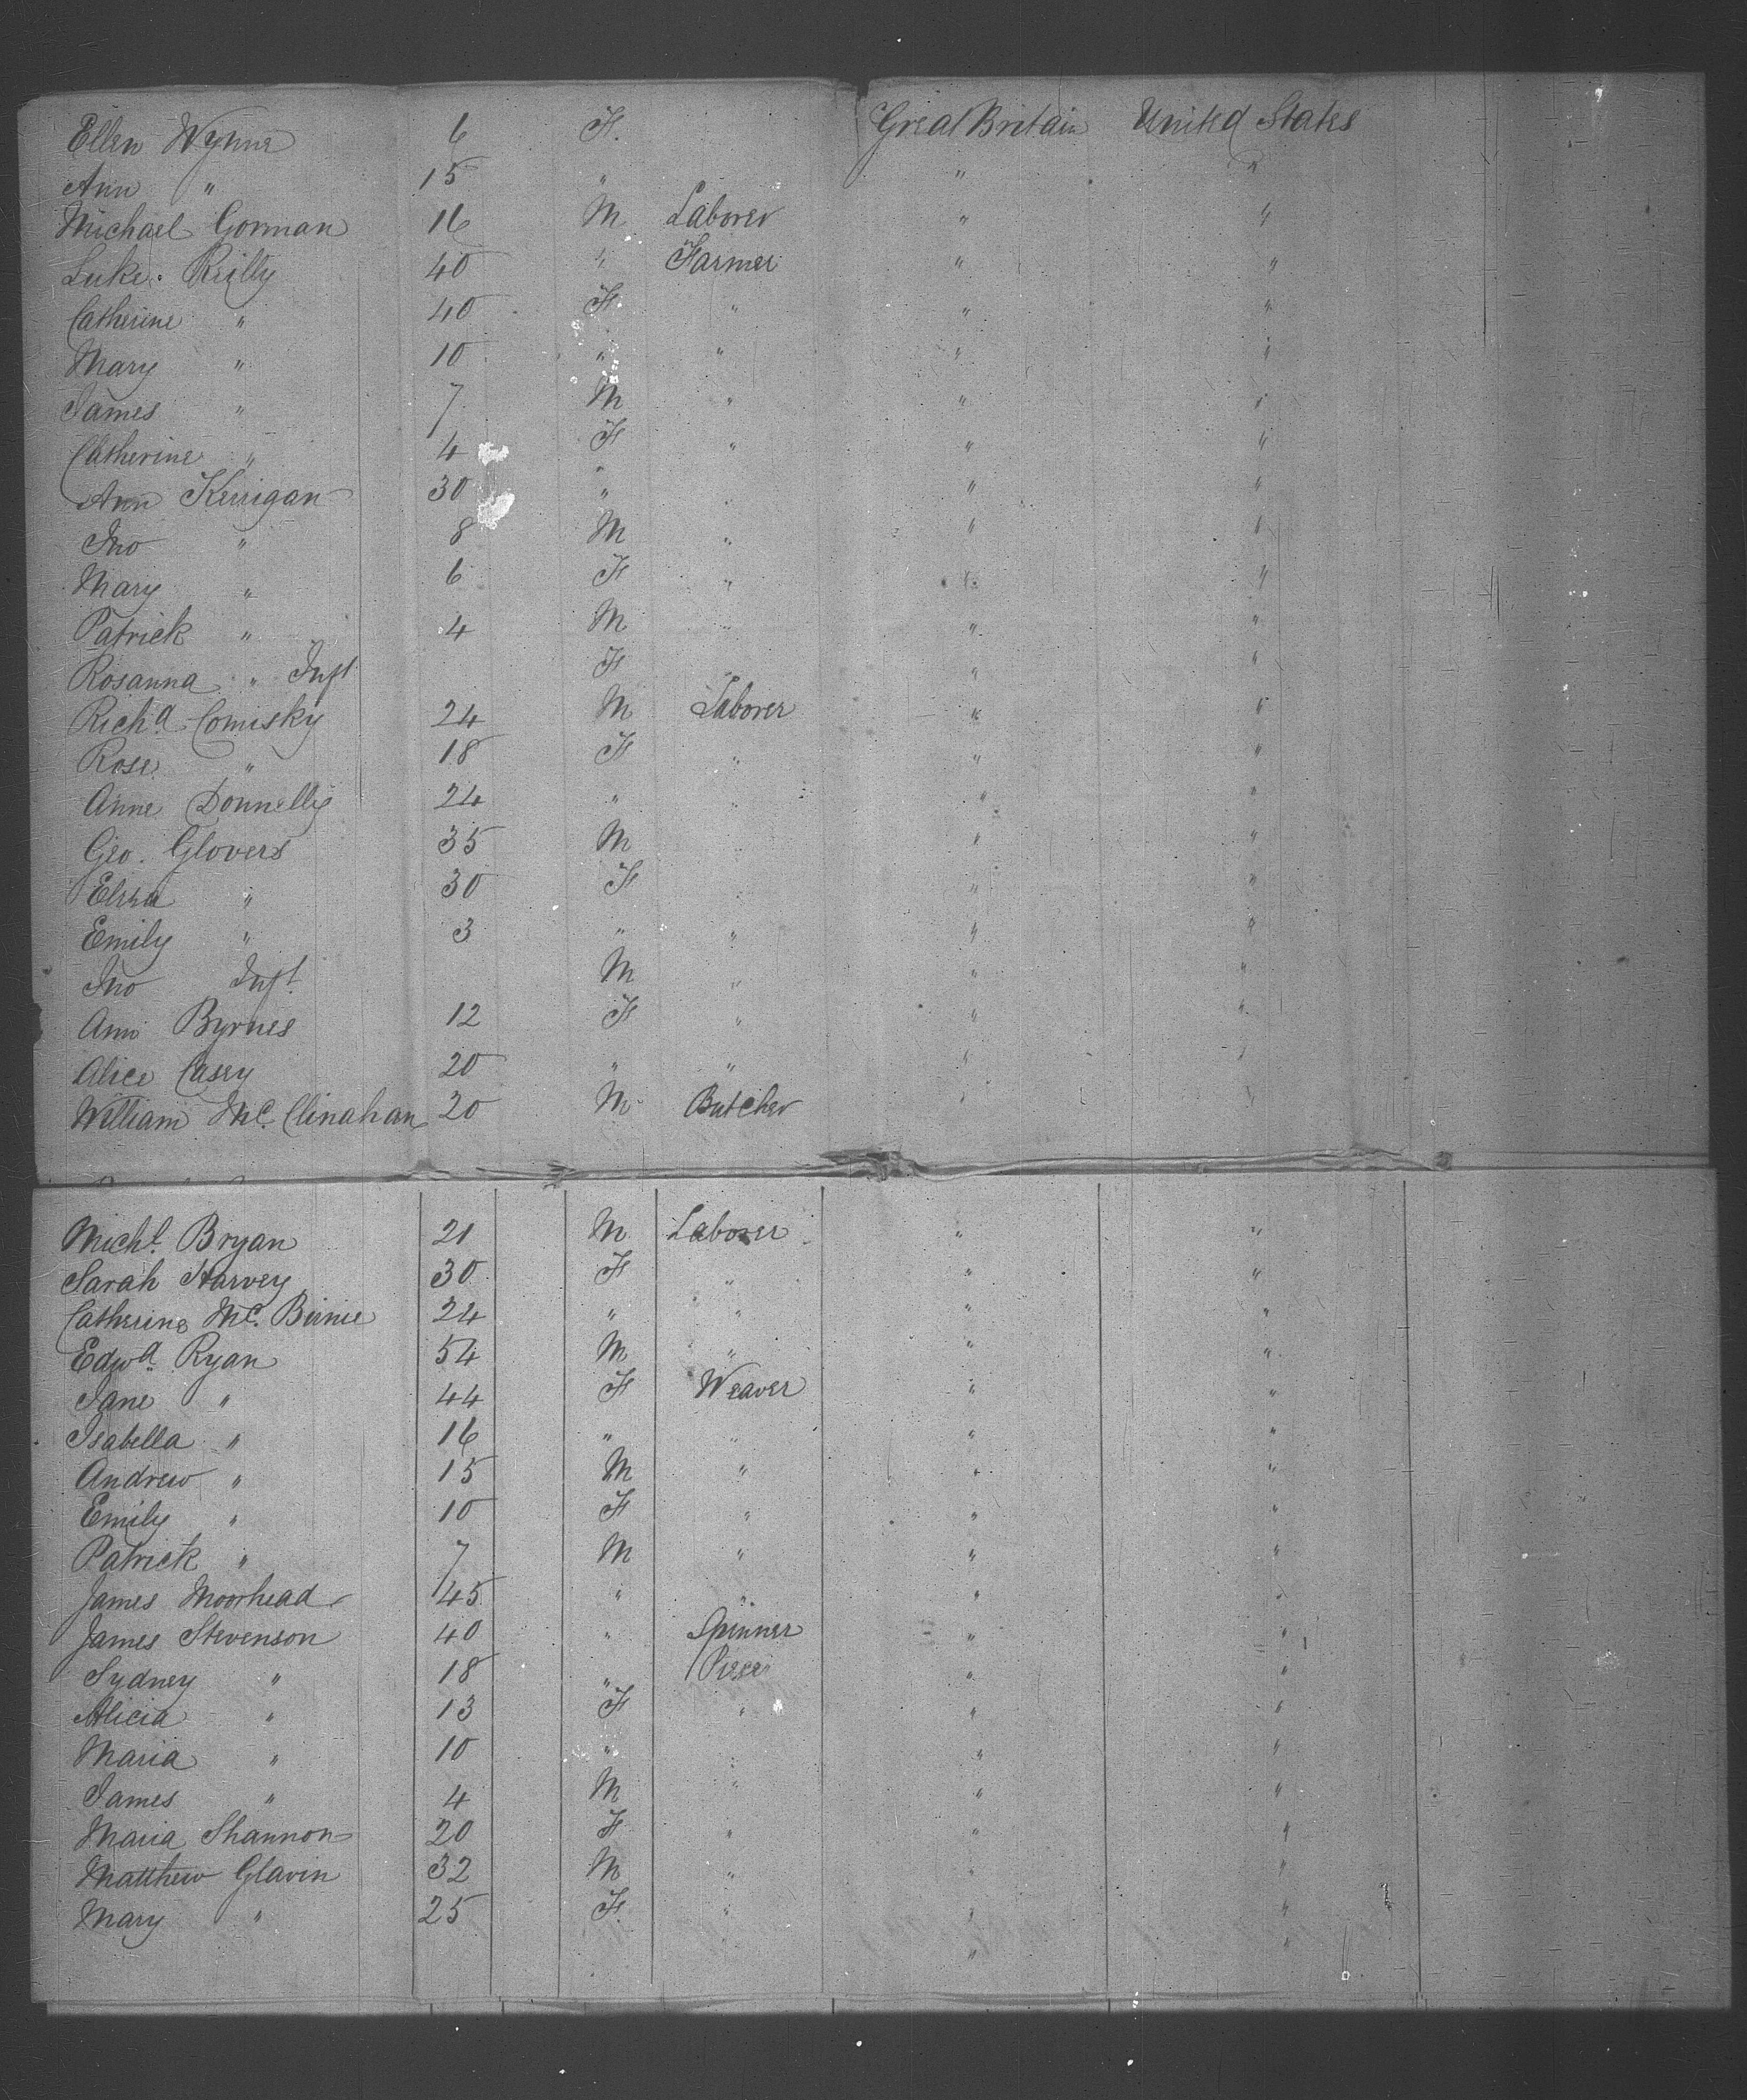 Ellen Wynne 6 F. Great Britain United States
Ann " 15 " " "
Michael Gorman 16 M Laborer " "
Luke Reilly 40 " Farmer " "
Catherine " 40 F " " "
Mary " 10 " " " "
James " 7 M " " "
Catherine " 4 F " " "
Ann Kerrigan 30 " " " "
Jno " 8 M " " "
Mary " 6 F " " "
Patrick " 4 M " " "
Rosanna " Inft F " " "
Richd Comisky 24 M Laborer " "
Rose " 18 F " " "
Anne Donnelly 24 " " " "
Geo. Glovers 35 M " " "
Eliza " 30 F " " "
Emily " 3 " " " "
Jno Inft. M " " "
Ann Byrnes 12 F " " "
Alice Casey 20 " " " "
William Mc. Clinahan 20 M Butcher " "
Michl. Bryan 21 M Laborer " "
Sarah Harvey 30 F " " "
Catherine Mc. 24 " " " "
Edwd. Ryan 54 M " " "
Jane " 44 F Weaver " "
Isabella " 16 " " " "
Andrew " 15 M " " "
Emily " 10 F " " "
Patrick " 7 M " " "
James Moorhead 45 " " " "
James Stevenson 40 " Spinner " "
Sydney " 18 " " "
Alicia " 13 F " " "
Maria " 10 " " " "
James " 4 M " " "
Maria Shannon 20 F " " "
Matthew Glavin 32 M " " "
Mary " 25 F. " " "
" "